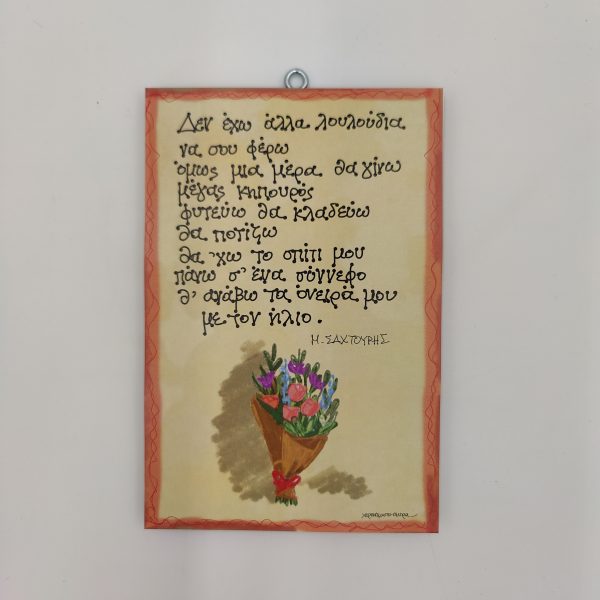 Δεν έχω άλλα λουλούδια
να σου φέρω
όμως μια μέρα θα γίνω
μέγας κηπουρός
φυτεύω θα κλαδεύω
θα ποτίζω
θα 'χω το σπίτι μου
πάνω σ' ένα σύννεφο
θ' ανάβω τα όνειρά μου
με τον ήλιο.
Μ. ΣΑΧΤΟΥΡΗΣ